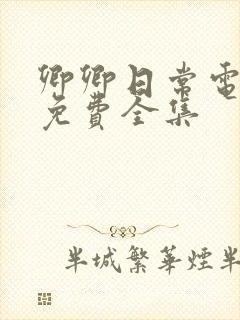 卿卿日常電
免費全集
半城繁華煙半